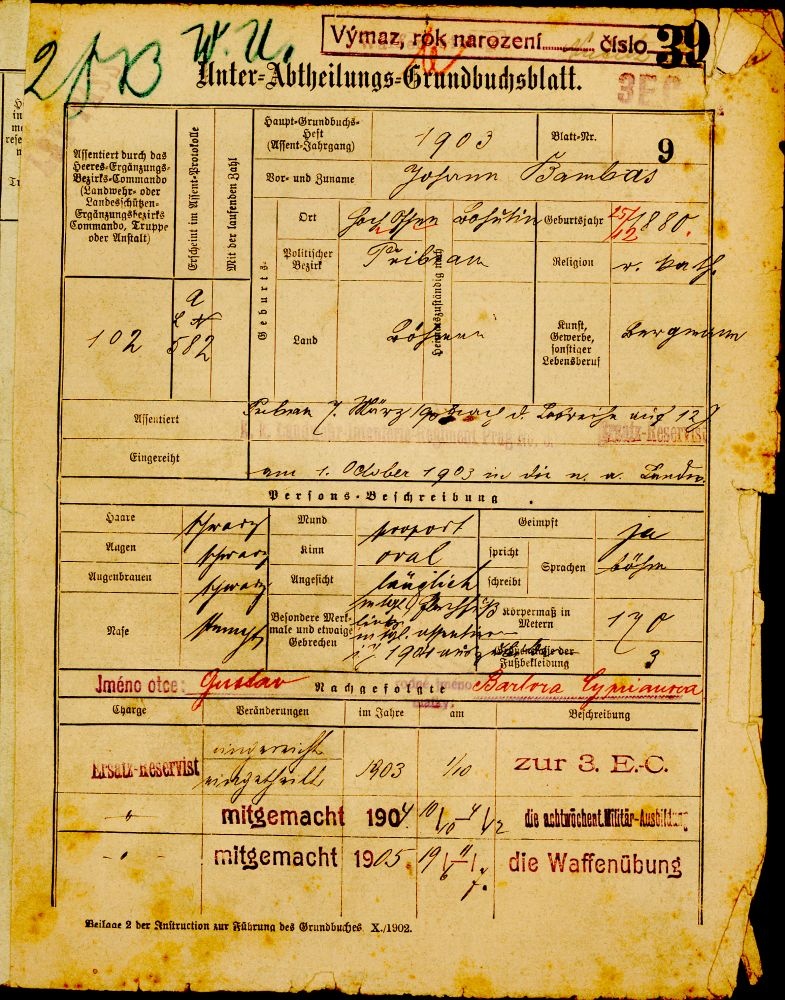 Výmaz, rok narození číslo 39
W. U.
Unter-Abtheilungs-Grundbuchsblatt.
3EC
Assentiert durch das
Heeres-Ergänzungs-
Bezirks-Commando
(Landwehr- oder
Landesschützen-
Ergänzungsbezirks
Commando, Truppe
oder Anstalt)
Erscheint im Assent-Protokolle
Mit der laufenden Zahl
Haupt-Grundbuchs-
Heft
(Assent-Jahrgang)
1903
Blatt-Nr.
9
Vor- und Zuname
Johann Bambas
Geburts-
Heimatszuständig nach
Ort
Bohutin
Geburtsjahr
25/12 1880.
Politischer
Bezirk
Pribram
Religion
r. kath.
Land
Böhmen
Kunst,
Gewerbe,
sonstiger
Lebensberuf
Bergmann
102
582
Assentiert
Pribram 7. März auf 12 J
Ersatz-Reservist
Eingereiht
am 1. October 1903 in die n. a. Landw.
Persons-Beschreibung.
Haare
schwarz
Mund
proport
Geimpft
ja
Augen
schwarz
Kinn
oval
spricht
schreibt
Sprachen
böhm
Augenbrauen
schwarz
Angesicht
länglich
Nase
stumpf
Besondere Merk-
male und etwaige
Gebrechen
Körpermaß in
Metern
170
Fußbekleidung
3
Jméno otce: Gustav
Nachgefolgte
Charge
Veränderungen
im Jahre
am
Beschreibung
Ersatz-Reservist
eingereiht
eingetheilt
1903
1/10
zur 3. E.-C.
" mitgemacht 1904 die achtwöchent. Militär-Ausbildung
" mitgemacht 1905. die Waffenübung
Beilage 2 der Instruction zur Führung des Grundbuches X./1902.